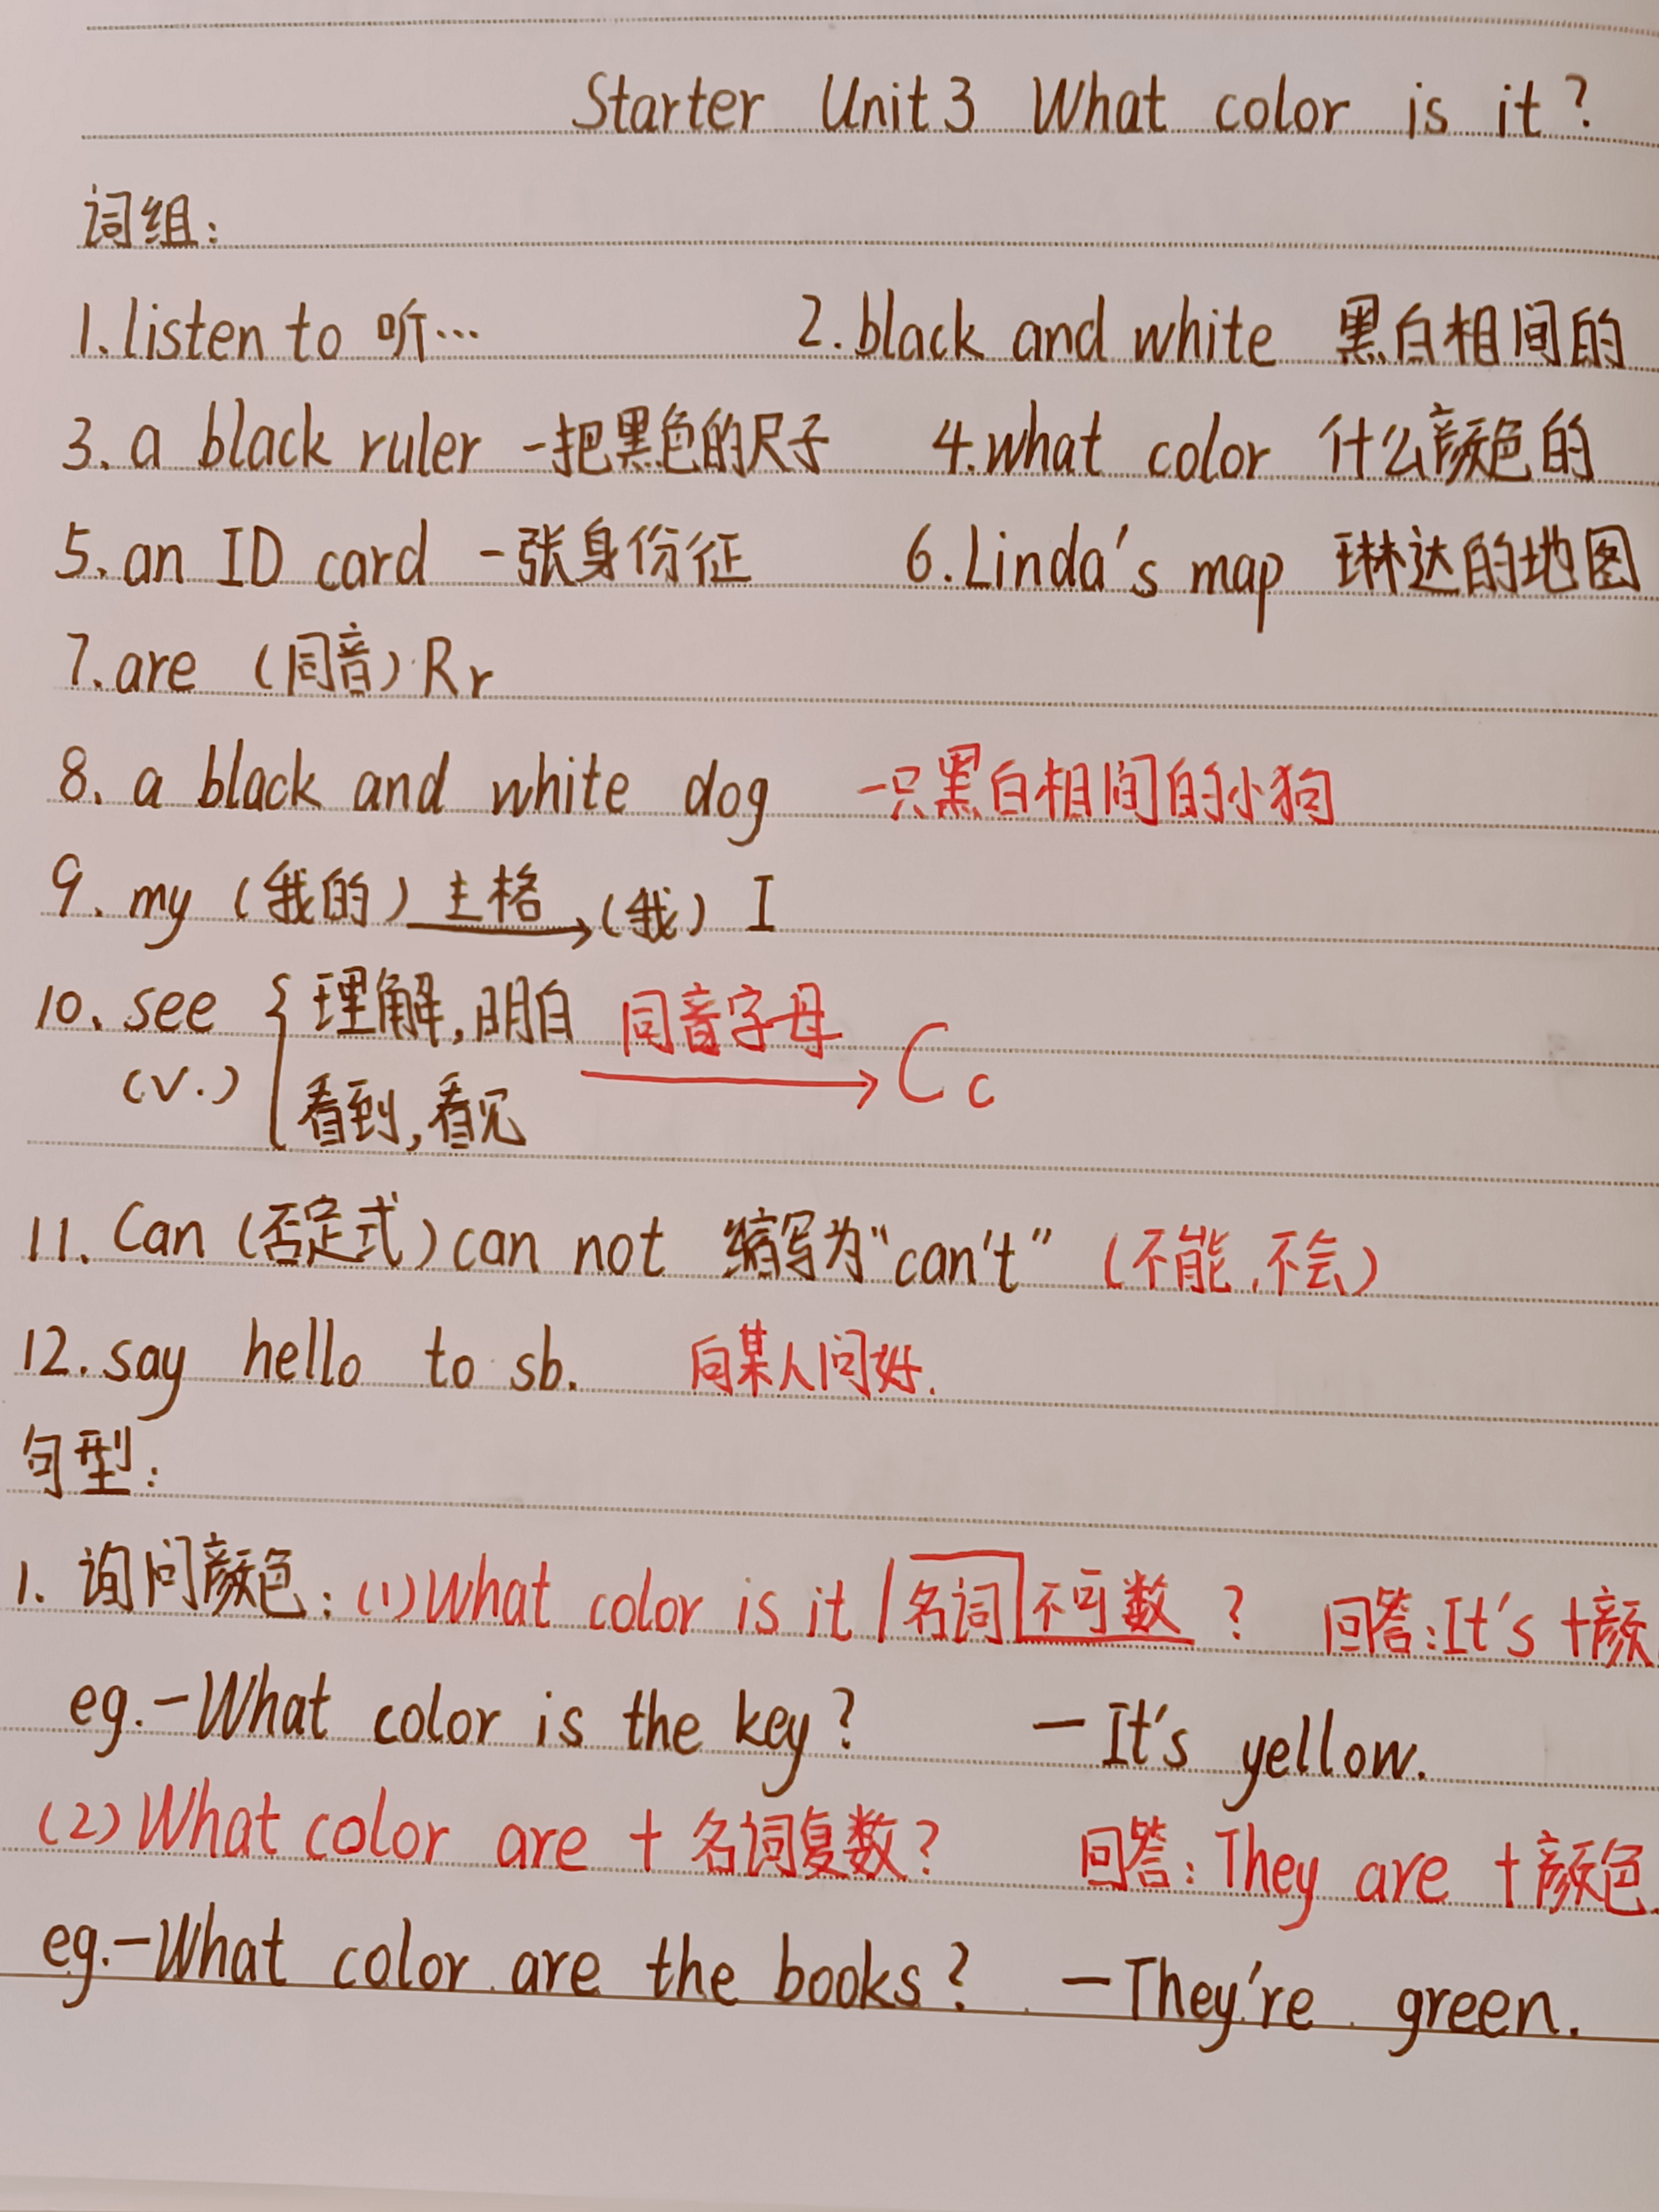 Starter Unit 3 What color is it?
词组:
1. listen to 听… 2. black and white 黑白相间的
3. a black ruler 一把黑色的尺子 4. what color 什么颜色的
5. an ID card 一张身份征 6. Linda's map 琳达的地图
7. are (同音) Rr
8. a black and white dog 一只黑白相间的小狗
9. my (我的) 主格→ (我) I
10. see { 理解,明白 同音字母→ Cc
(v.) 看到,看见
11. Can (否定式) can not 缩写为“can't” (不能,不会)
12. say hello to sb. 向某人问好.
句型:
1. 询问颜色: (1) What color is it / 名词 不可数 ? 回答: It's +颜
eg. —What color is the key? —It's yellow.
(2) What color are + 名词复数? 回答: They are +颜色.
eg. —What color are the books? —They're green.